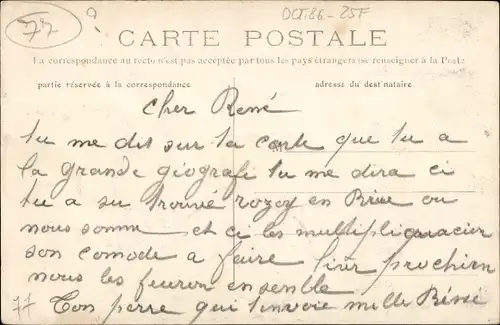 77 ?
OCT.86 - 25F
CARTE POSTALE
La correspondance au recto n'est pas acceptée par tous les pays étrangers (se renseigner à la Poste
partie réservée à la correspondance
adresse du destinataire
Cher René
tu me dit sur ta carte que tu a
la grande géografi tu me dira ci
tu a su trouvé rozoy en Brie ou
nous somme et ci les multiplicacier
son comode a faire prochien
nous les feuron ensenble
77 Ton perre qui t'invoie mille